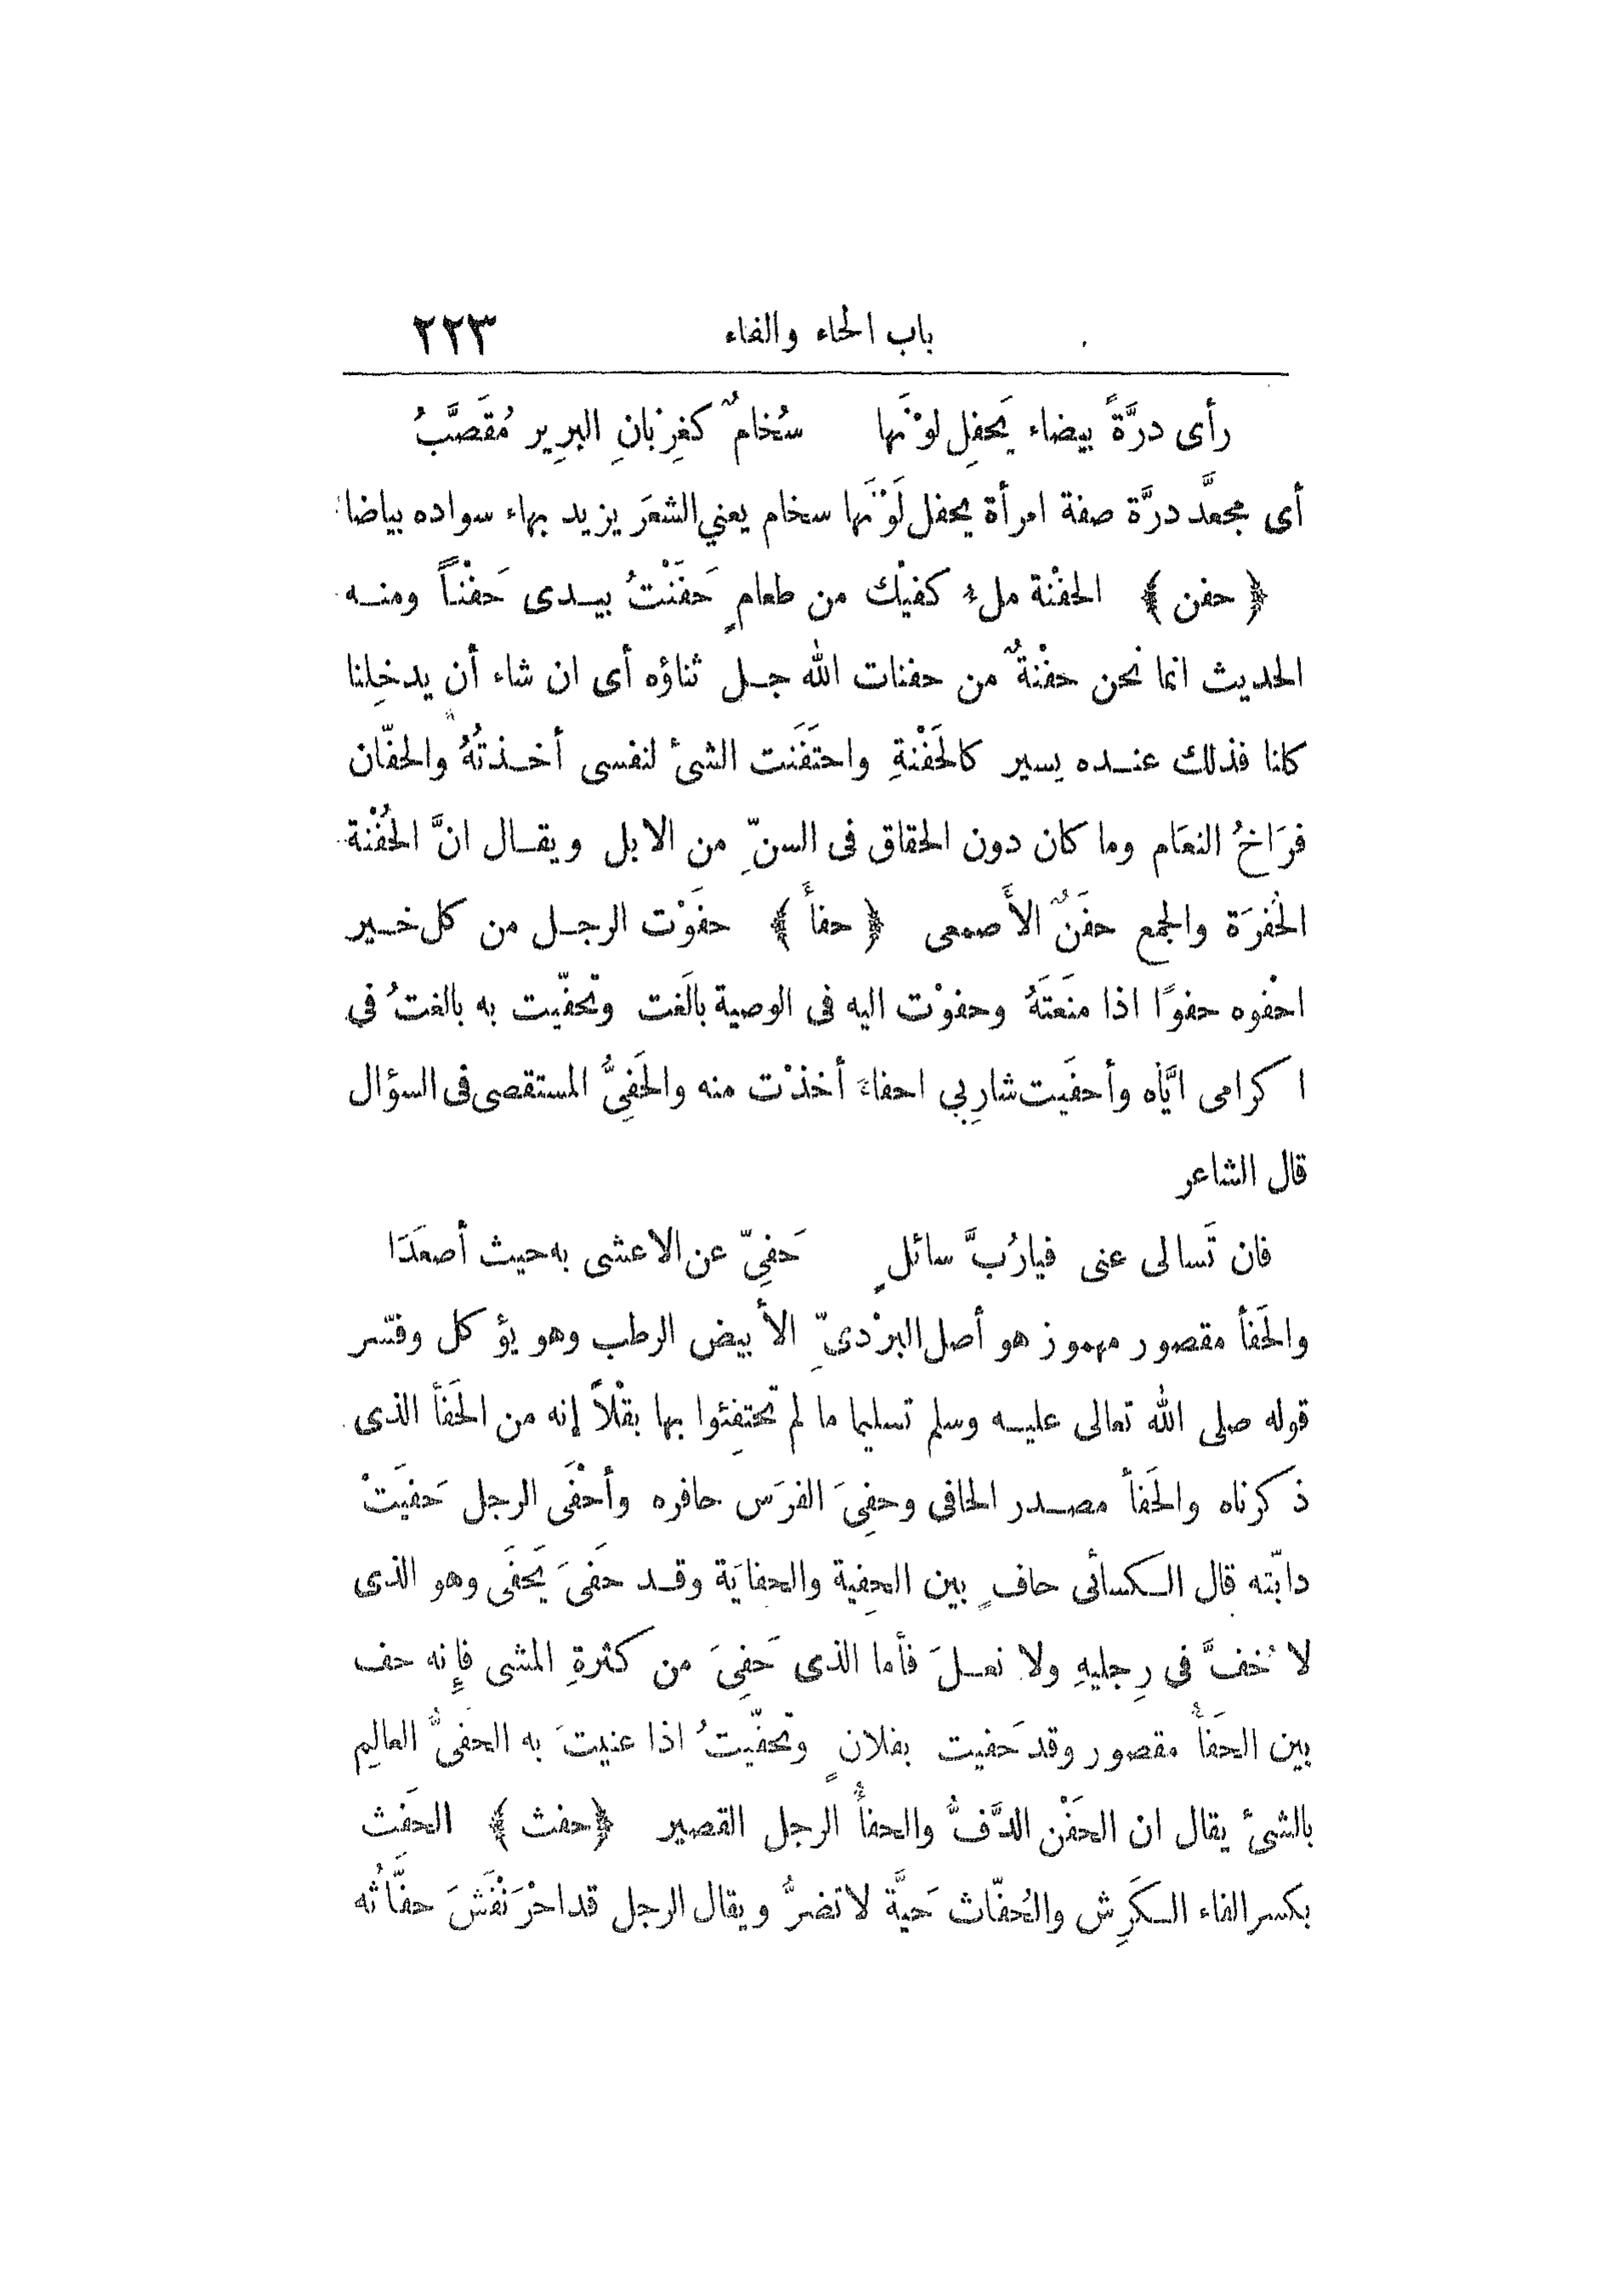 باب الحاء والفاء ٢٢٣
رأى درَّةً بيضاء يَحفِل لوْنَها سُخامٌ كغِرْبانِ البرِير مُقَصَّبُ
أى مجعَّد درَّة صفة امرأة يحفل لَوْنَها سخام يعني الشعَر يزيد بهاء سواده بياضا
﴿ حفن ﴾ الحفْنة ملءُ كفيْك من طعامٍ حَفَنْتُ بيدى حَفْناً ومنه
الحديث انما نحن حفْنةٌ من حفنات الله جل ثناؤه أى ان شاء أن يدخِلنا
كلنا فذلك عنده يسير كالحَفْنةِ واحتَفَنت الشئ لنفسى أخذتُهُ والحفّان
فرَاخُ النعَام وما كان دون الحقاق فى السنّ من الابل ويقال انَّ الحُفْنة
الحُفرَة والجمع حفَنٌ الأَصمعى ﴿ حفأَ ﴾ حفَوْت الرجل من كل خير
احْفوه حفوًا اذا منَعتَهُ وحفوْت اليه فى الوصية بالَغت وتحفّيت به بالغتُ فى
اكرامى ايَّاه وأحفَيت شارِبي احفاءَ أخذْت منه والحَفِىُّ المستقصى فى السؤال
قال الشاعر
فان تَسالى عنى فيارُبَّ سائلٍ حَفِىّ عن الاعشى به حيث أصعَدَا
والحَفأ مقصور مهموز هو أصل البرْدىّ الأَبيض الرطب وهو يؤكل وفسّر
قوله صلى الله تعالى عليه وسلم تسليما ما لم تحتفِئوا بها بقْلاً إنه من الحَفأَ الذى
ذكرناه والحَفأ مصدر الحافى وحفِىَ الفرَس حافره وأحْفَى الرجل حَفيَتْ
دابّته قال الكسائى حافٍ بين الحِفية والحفايَة وقد حَفىَ يَحفَى وهو الذى
لا خُفَّ فى رِجليهِ ولا نعلَ فأما الذى حَفِىَ من كثرةِ المشى فإِنه حف
بين الحَفأُ مقصور وقد حَفيت بفلانٍ وتحفّيتُ اذا عنيتَ به الحفىُّ العالِم
بالشئ يقال ان الحَفْن الدَّفُّ والحفأُ الرجل القصير ﴿ حفث ﴾ الحَفث
بكسر الفاء الكَرِش والحُفّاث حَيَّة لا تضرُّ ويقال الرجل قد احْرَنْفَشَ حفَّاثُه